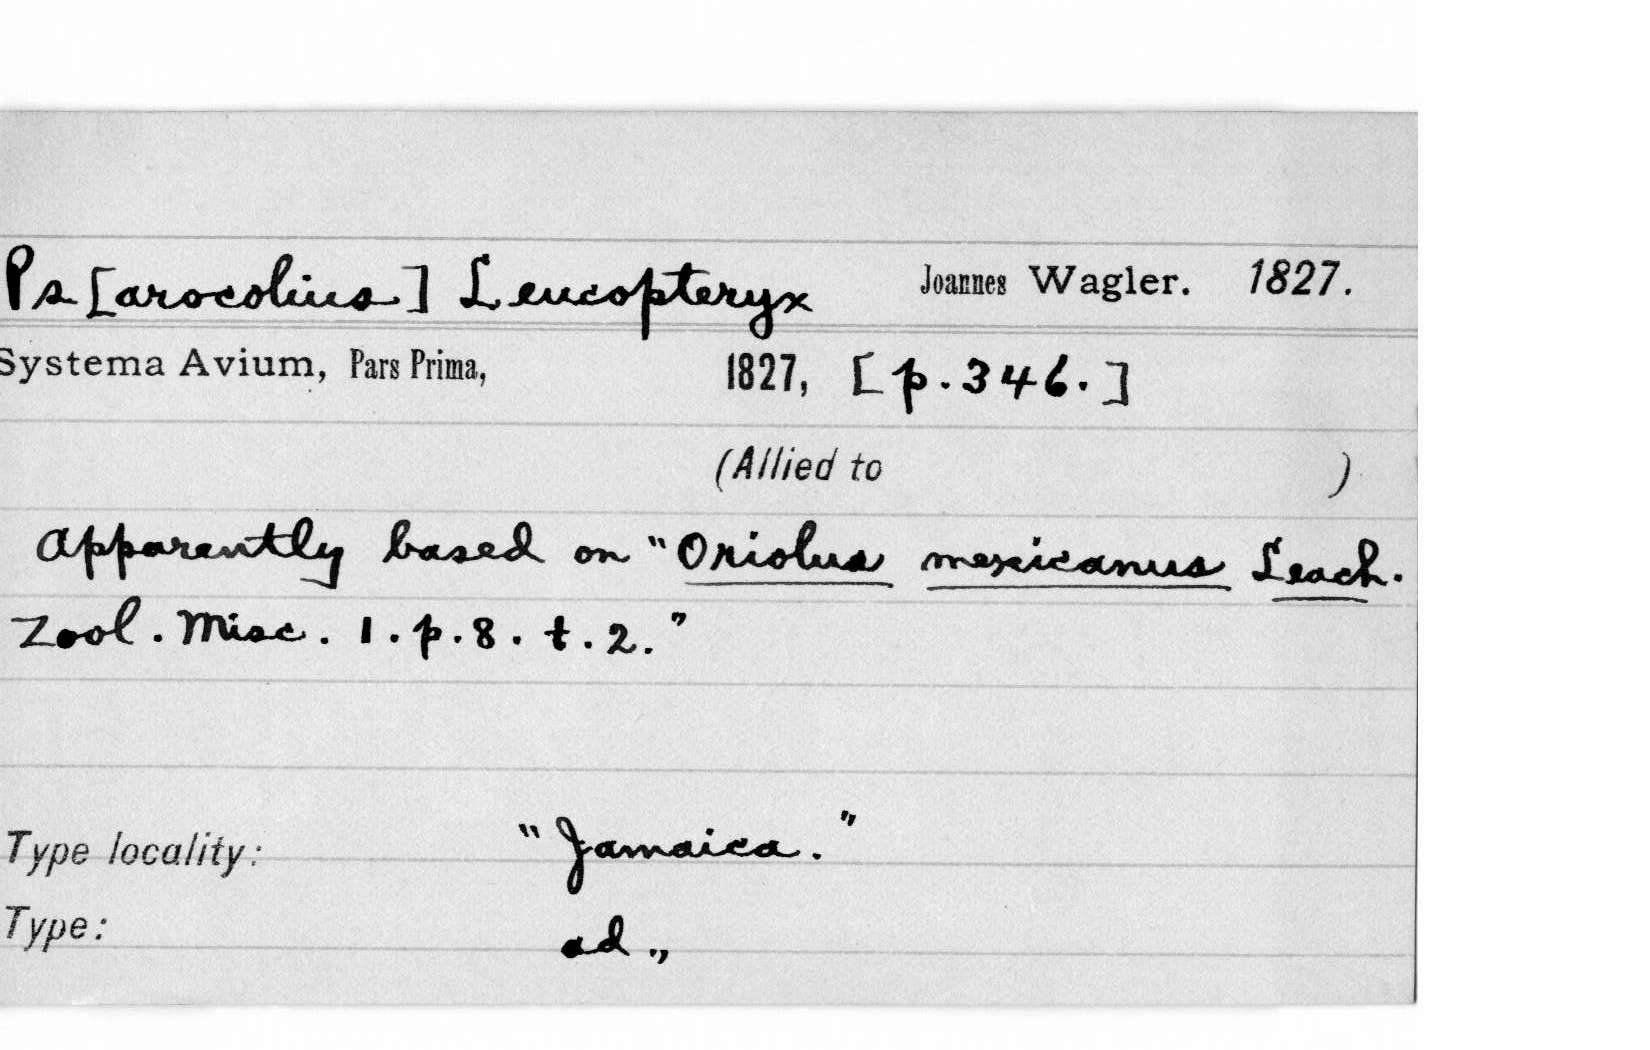 Ps[arocolius] Leucopteryx Joannes Wagler. 1827.
Systema Avium, Pars Prima, 1827, [p.346.]
(Allied to )
Apparently based on "Oriolus mexicanus Leach.
Zool. Misc. 1. p. 8. t. 2."
Type locality: "Jamaica."
Type: ad.,